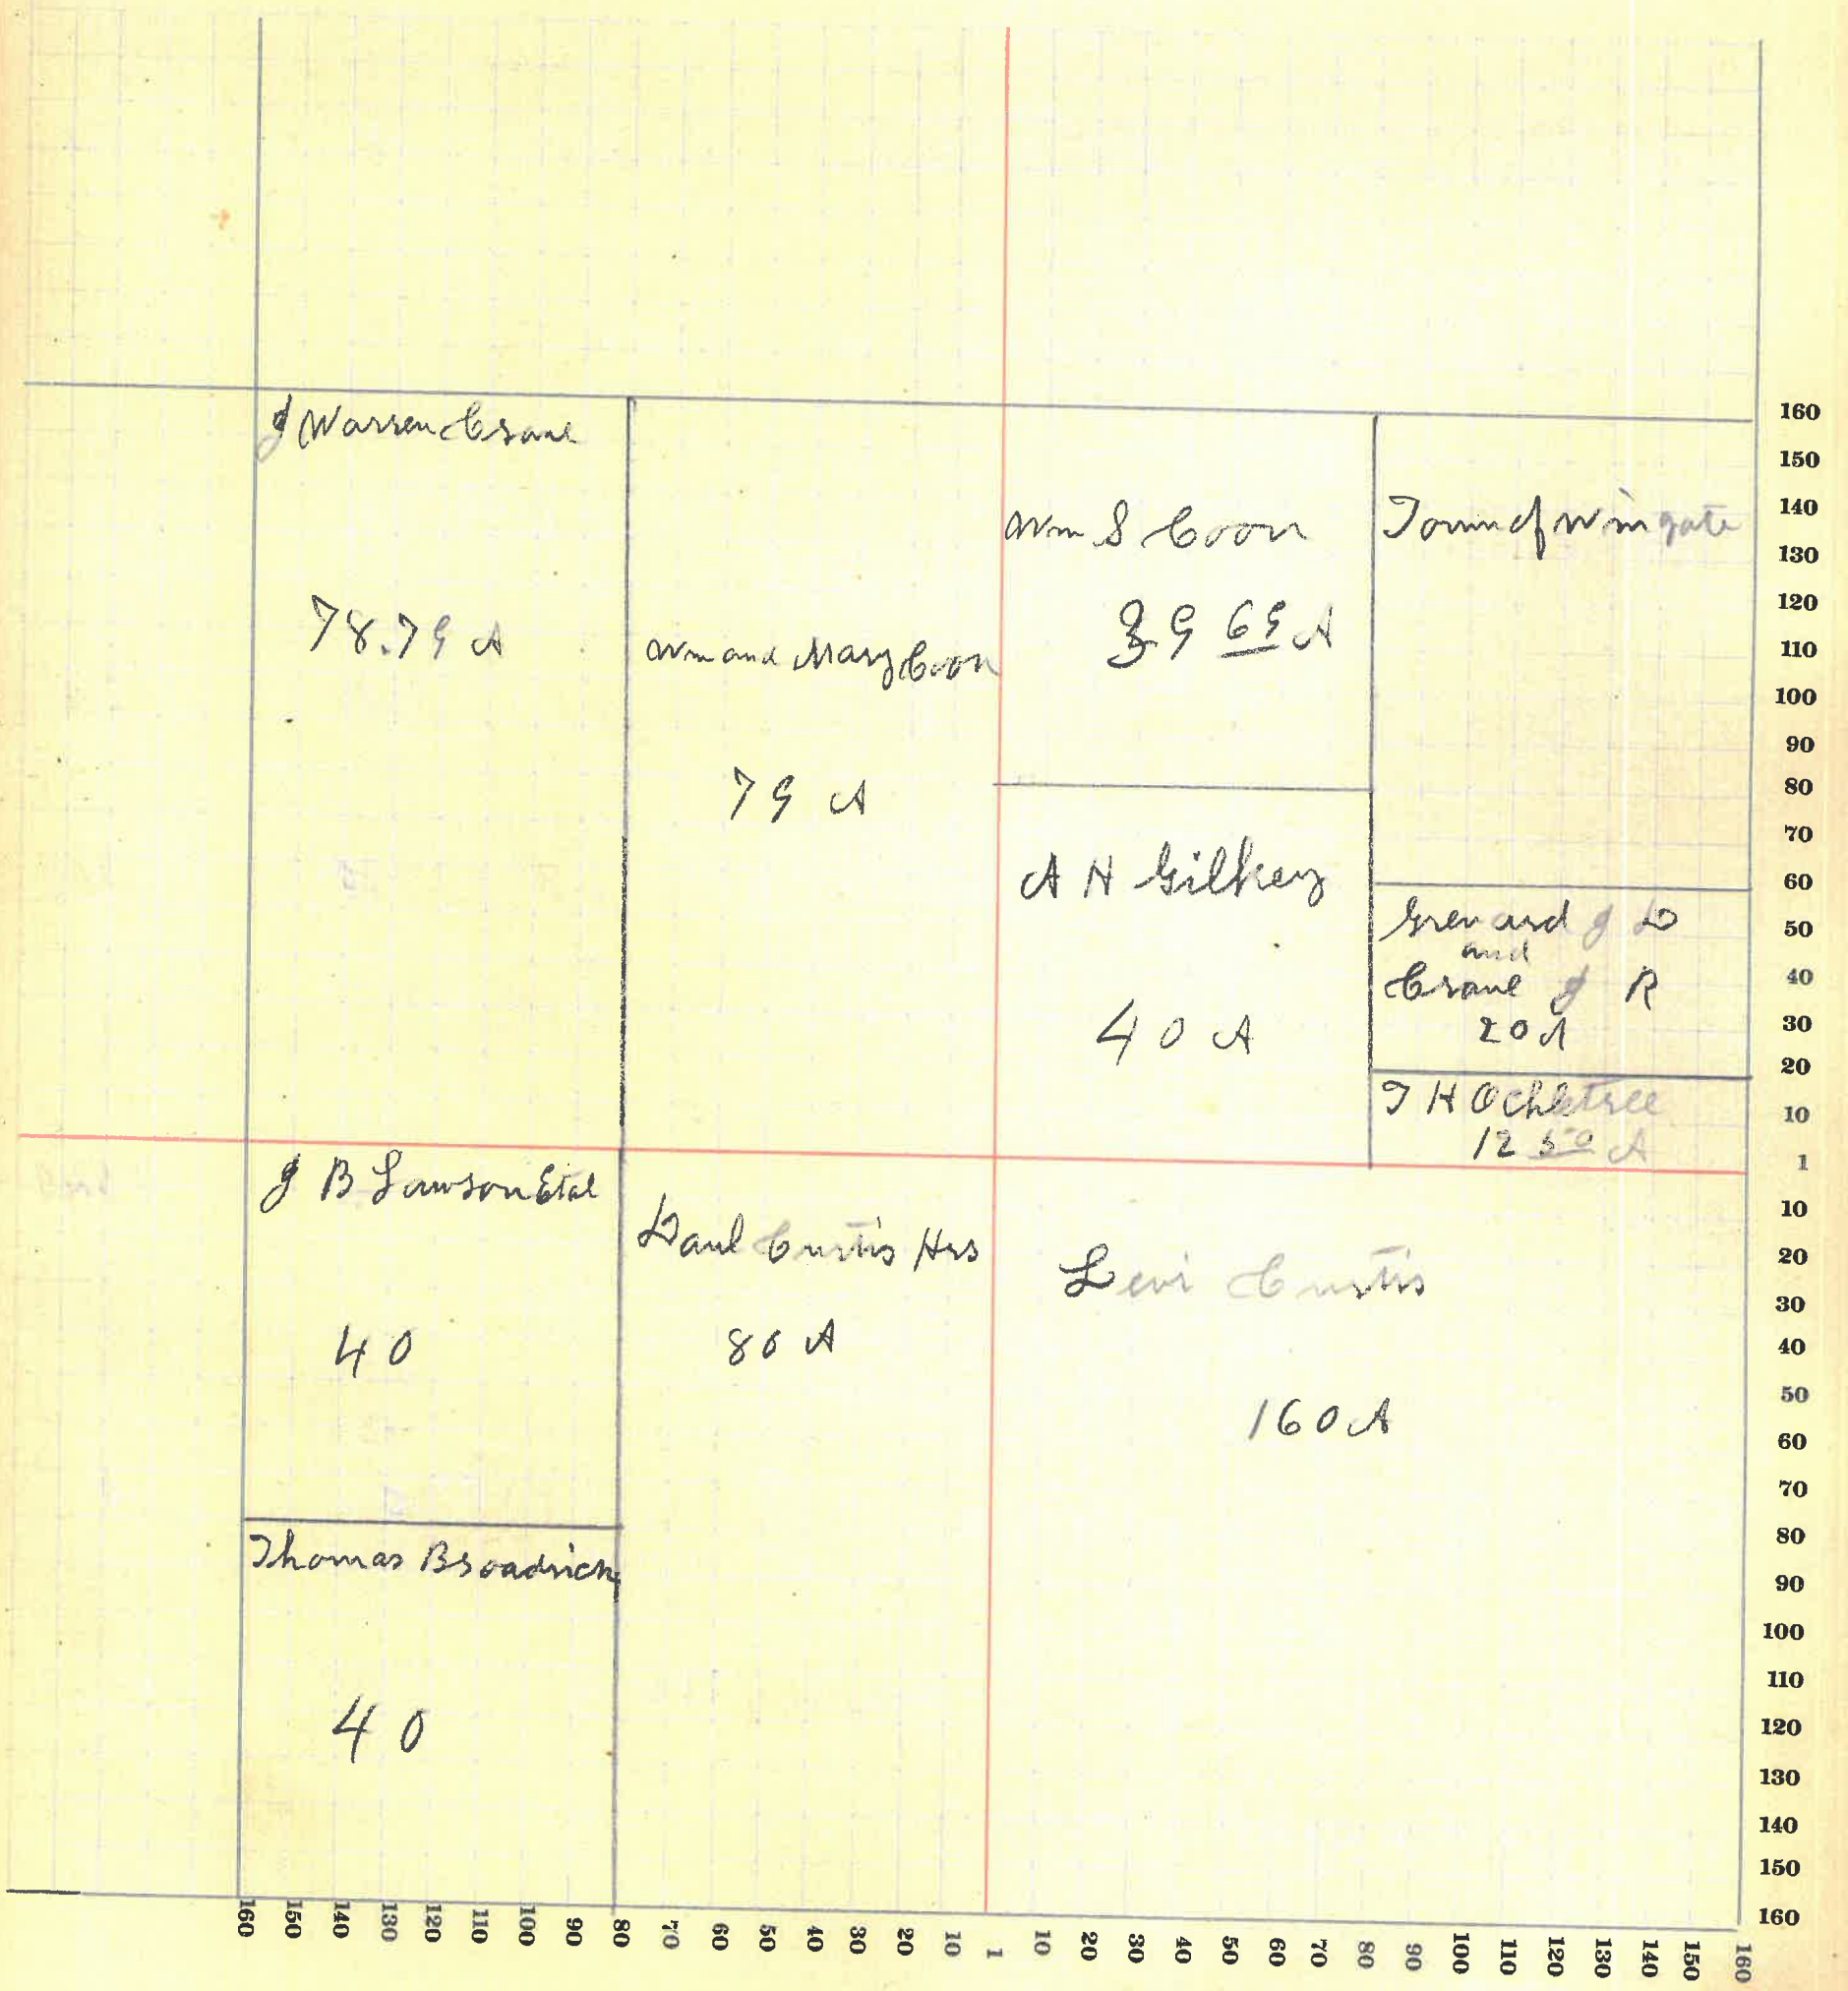 J Warren Crane
78.79 A
Wm and Mary Coon
79 A
Wm S Coon
39 69 A
Town of Wingate
A H Gilkey
40 A
Grenard J D
and
Crane J R
20 A
T H Ochletree
12 50 A
J B Lawson Etal
40
Danl Curtis Hrs
80 A
Levi Curtis
160 A
Thomas Broadrick
40
160
150
140
130
120
110
100
90
80
70
60
50
40
30
20
10
1
10
20
30
40
50
60
70
80
90
100
110
120
130
140
150
160
160 150 140 130 120 110 100 90 80 70 60 50 40 30 20 10 1 10 20 30 40 50 60 70 80 90 100 110 120 130 140 150 160